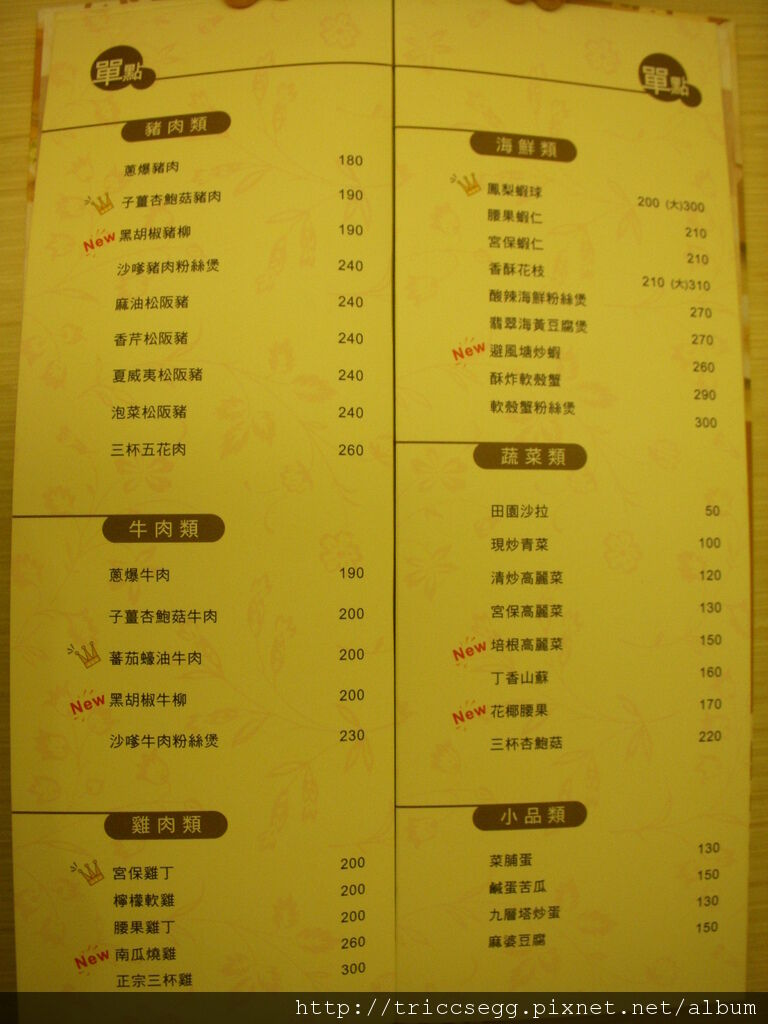 單點
豬肉類
蔥爆豬肉 180
子薑杏鮑菇豬肉 190
New 黑胡椒豬柳 190
沙嗲豬肉粉絲煲 240
麻油松阪豬 240
香芹松阪豬 240
夏威夷松阪豬 240
泡菜松阪豬 240
三杯五花肉 260
牛肉類
蔥爆牛肉 190
子薑杏鮑菇牛肉 200
蕃茄蠔油牛肉 200
New 黑胡椒牛柳 200
沙嗲牛肉粉絲煲 230
雞肉類
宮保雞丁 200
檸檬軟雞 200
腰果雞丁 200
New 南瓜燒雞 260
正宗三杯雞 300
單點
海鮮類
鳳梨蝦球 200 (大)300
腰果蝦仁 210
宮保蝦仁 210
香酥花枝 210 (大)310
酸辣海鮮粉絲煲 270
翡翠海黃豆腐煲 270
New 避風塘炒蝦 260
酥炸軟殼蟹 290
軟殼蟹粉絲煲 300
蔬菜類
田園沙拉 50
現炒青菜 100
清炒高麗菜 120
宮保高麗菜 130
New 培根高麗菜 150
丁香山蘇 160
New 花椰腰果 170
三杯杏鮑菇 220
小品類
菜脯蛋 130
鹹蛋苦瓜 150
九層塔炒蛋 130
麻婆豆腐 150
http://triccsegg.pixnet.net/album